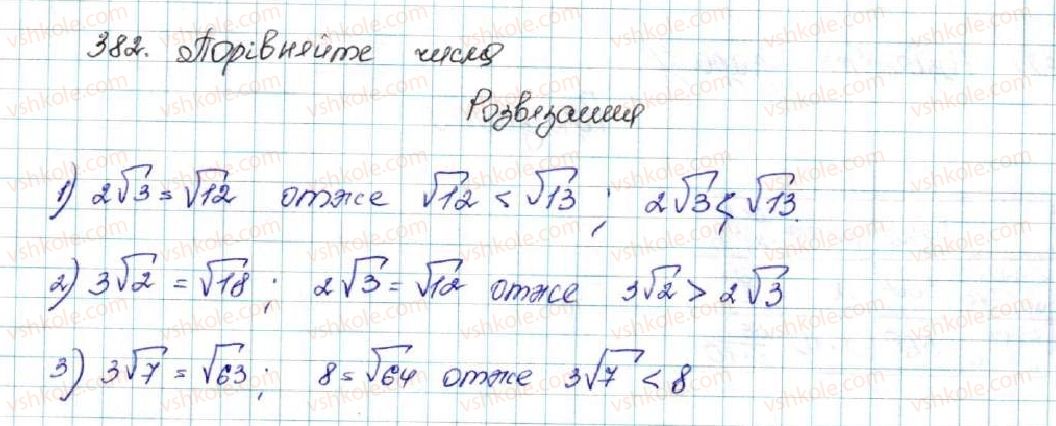 382. Порівняйте числа
Розвязання
1) 2√3 = √12 отже √12 < √13 ; 2√3 < √13.
2) 3√2 = √18 ; 2√3 = √12 отже 3√2 > 2√3
3) 3√7 = √63 ; 8 = √64 отже 3√7 < 8